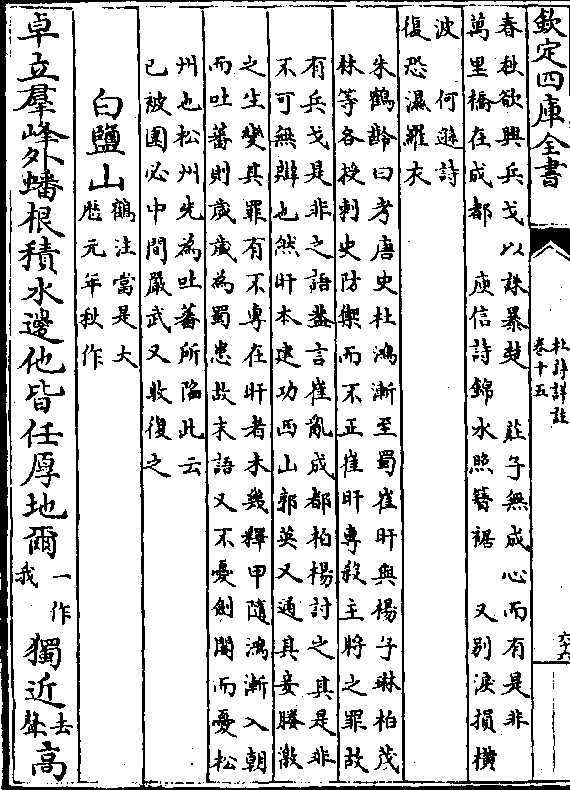 欽定四庫全書
杜詩詳註
卷十五
春秋欲興兵戈以誅暴楚 莊子無成心而有是非
萬里橋在成都 庾信詩錦水照簪裾 又別淚損橫
波 何遜詩
復恐濕羅衣
朱鶴齡曰考唐史杜鴻漸至蜀崔旰與楊子琳柏茂
林等各授刺史防禦而不正崔旰專殺主將之罪故
有兵戈是非之語葢言崔亂成都柏楊討之其是非
不可無辯也然旰本建功西山郭英乂通其妾媵激
之生變其罪有不專在旰者未幾釋甲隨鴻漸入朝
而吐蕃則歲歲為蜀患故末語又不憂劍閣而憂松
州也松州先為吐蕃所陷此云
已被圍必中間嚴武又收復之
白鹽山 鶴注當是大
厯元年秋作
卓立羣峰外蟠根積水邊他皆任厚地爾一作我獨近去聲高